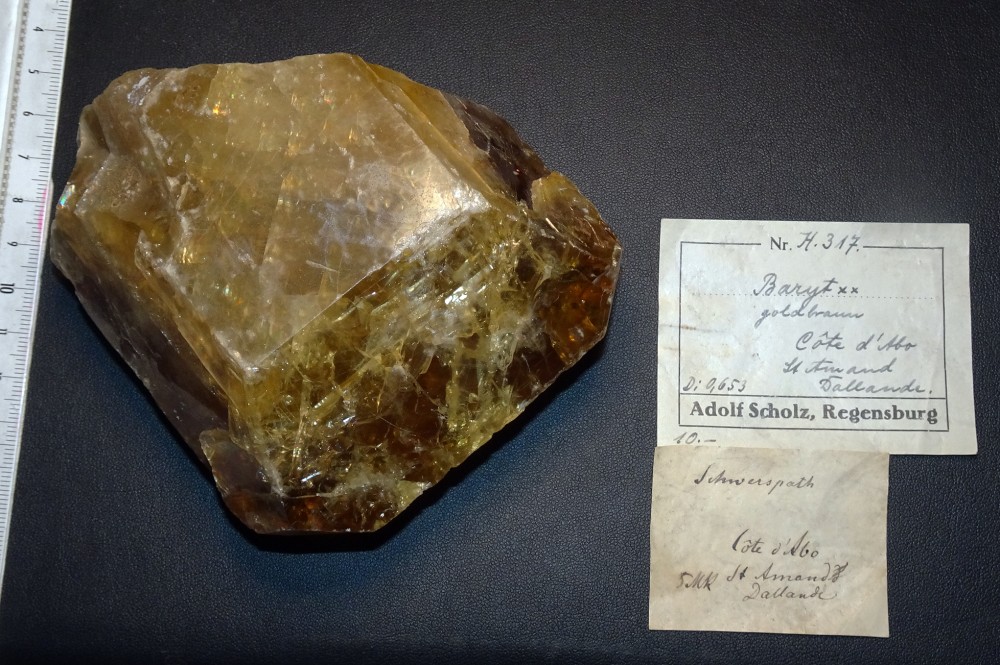 4
5
6
7
8
9
10
Nr. H. 317.
Baryt xx
goldbraun
Côte d'Abo
St Amand
Di 9,653 Dallande.
Adolf Scholz, Regensburg
10.-
Schwerspath
Côte d'Abo
5 Mk St Amand
Dallande